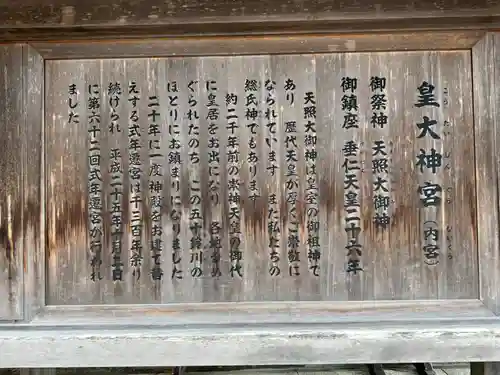 皇大神宮（内宮）
こうたいじんぐう ないくう
御祭神 天照大御神
御鎮座 垂仁天皇二十六年
天照大御神は皇室の御祖神で
あり 歴代天皇が厚くご崇敬に
なられています また私たちの
総氏神でもあります
約二千年前の崇神天皇の御代
に皇居をお出になり 各地をめ
ぐられたのち この五十鈴川の
ほとりにお鎮まりになりました
二十年に一度 神殿をお建て替
えする式年遷宮は千三百年余り
続けられ 平成二十五年十月二日
に第六十二回式年遷宮が行われ
ました